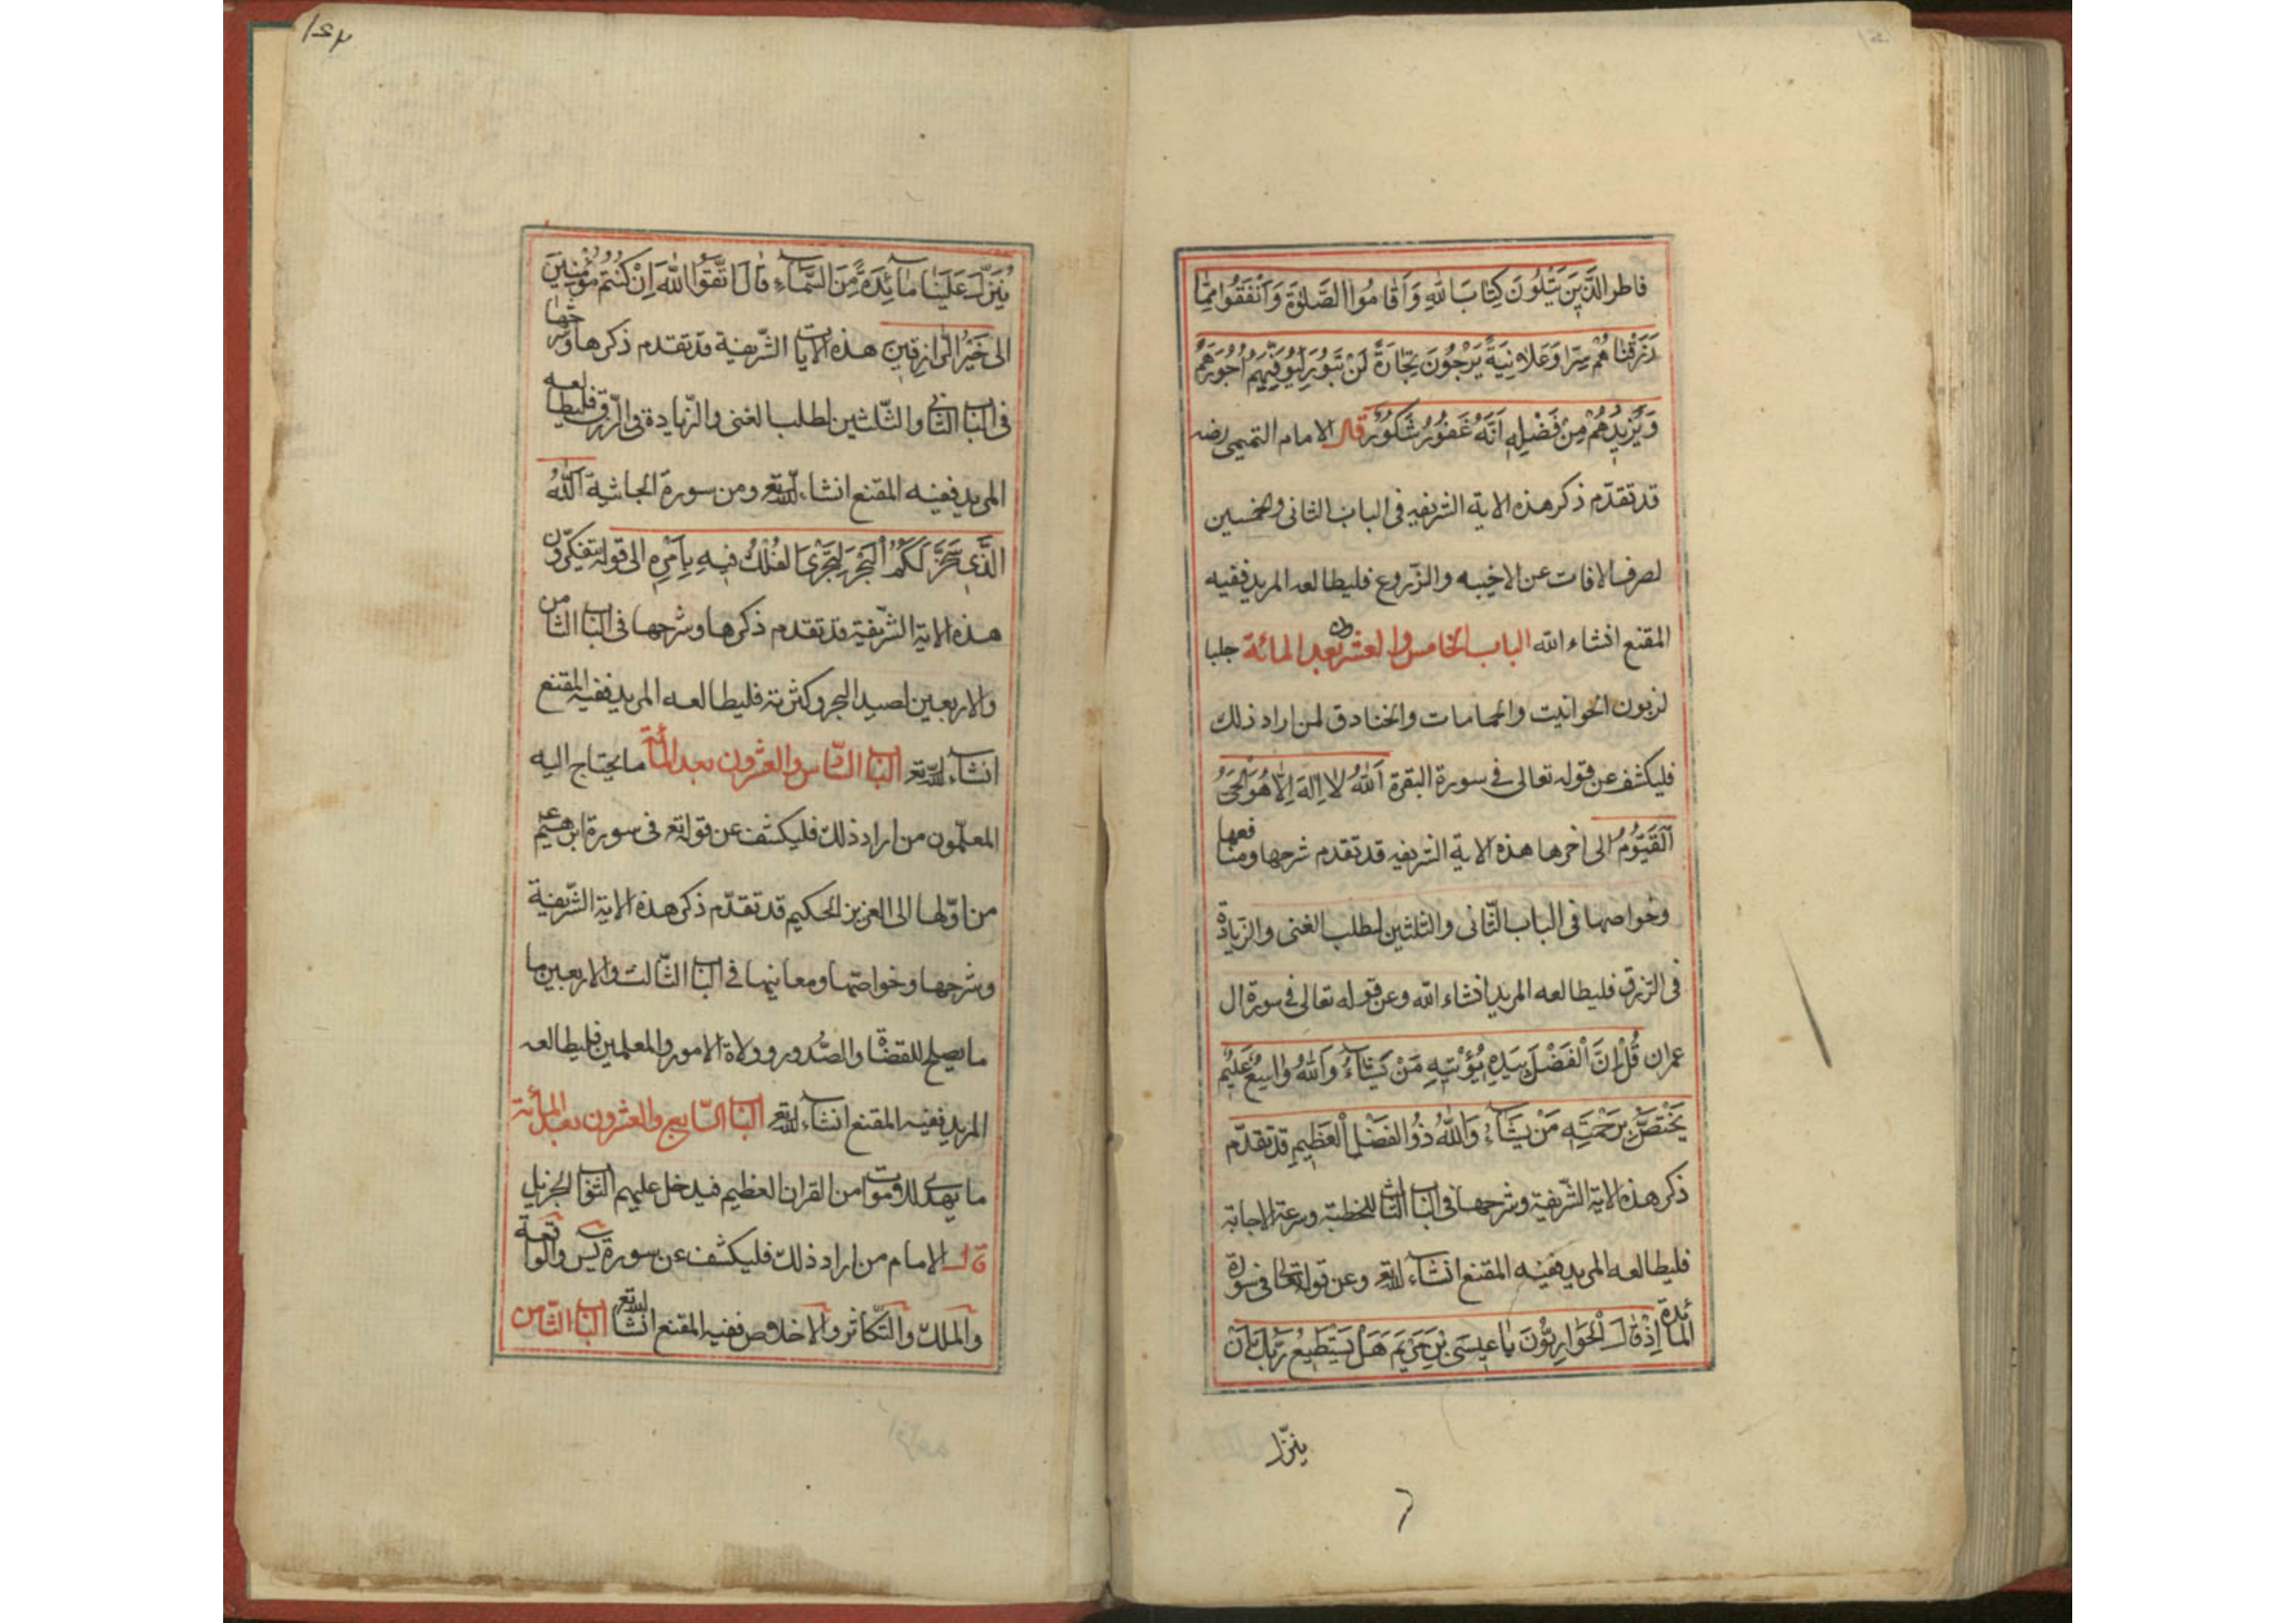 فاطر الَّذينَ يَتْلُونَ كِتَابَ اللهِ وَاَقَامُوا الصَّلوٰةَ وَاَنْفَقُوا مِمَّا
رَزَقْنَاهُمْ سِرًّا وَعَلَانِيَةً يَرْجُونَ تِجَارَةً لَنْ تَبُورَ لِيُوَفِّيَهُمْ اُجُورَهُمْ
وَيَزِيدُهُمْ مِنْ فَضْلِهِ اَنَّهُ غَفُورٌ شَكُورٌ قال الامام التميمى رضه
قد تقدّم ذكر هذه الاية الشريفه فى الباب الثانى والخمسين
لصرف الافات عن الاخبيه والزّروع فليطالعه المريد ففيه
المقنع انشاء الله الباب الخامس والعشرون بعد المائة جلبا
لزبون الحوانيت والحمامات والخنادق لمن اراد ذلك
فليكشف عن قوله تعالى فى سورة البقرة اَللهُ لا اِلهَ اِلّا هُوَ الْحَىُّ
اَلْقَيُّومُ الى اخرها هذه الاية الشريفه قد تقدم شرحها ومنافعها
وخواصها فى الباب الثّانى والثلثين لطلب الغنى والزيادة
فى الرزق فليطالعه المريد انشاء الله وعن قوله تعالى فى سورة ال
عمران قُلْ اِنَّ الْفَضْلَ بِيَدِهِ يُؤْتِيهِ مَنْ يَشَآءُ وَاللهُ وَاسِعٌ عَلِيمٌ
يَخْتَصُّ بِرَحْمَتِهِ مَنْ يَشَآءُ وَاللهُ ذُو الْفَضْلِ الْعَظِيمِ قد تقدّم
ذكر هذه الاية الشّريفة وشرحها فى الباب الثالث للخطبة وسرعة الاجابة
فليطالعه المريد ففيه المقنع انشاء الله تع وعن قوله تعالى فى سورة
المائدة اِذْ قَالَ الْحَوَارِيُّونَ يَا عِيسَى بْنَ مَرْيَمَ هَلْ يَسْتَطِيعُ رَبُّكَ اَنْ
ينزّل
يُنَزِّلَ عَلَيْنَا مَآئِدَةً مِنَ السَّمَآءِ قَالَ اتَّقُوا اللهَ اِنْ كُنْتُمْ مُؤْمِنِينَ
الى خَيْرُ الرَّازِقِينَ هذه الايات الشّريفة قد تقدم ذكرها وشرحها
فى الباب الثانى والثّلثين لطلب الغنى والزّيادة فى الرّزق فليطالعه
المريد ففيه المقنع انشاء الله تع ومن سورة الجاثية اَللهُ
الَّذِى سَخَّرَ لَكُمُ الْبَحْرَ لِتَجْرِىَ الْفُلْكُ فِيهِ بِاَمْرِهِ الى قوله يتفكّرون
هذه الاية الشّريفة قد تقدم ذكرها وشرحها فى الباب الثامن
والاربعين لصيد البحر وكثرته فليطالعه المريد ففيه المقنع
انشاء الله تع الباب السّادس والعشرون بعد المائة ما يحتاج اليه
المعلّمون من اراد ذلك فليكشف عن قوله تع فى سورة ابرهيم
من اوّلها الى العزيز الحكيم قد تقدّم ذكر هذه الاية الشّريفة
وشرحها وخواصّها ومعانيها فى الباب الثّالث والاربعين ما
ما يصلح للقضاة والصّدور وولاة الامور والمعلمين فليطالعه
المريد ففيه المقنع انشاء الله تع الباب السّابع والعشرون بعد المائة
ما يهدى للاموات من القران العظيم فيدخل عليهم الثواب الجزيل
قال الامام من اراد ذلك فليكشف عن سورة يس والواقعة
والملك والتّكاثر والاخلاص ففيه المقنع انشاء الله تع الباب الثّامن